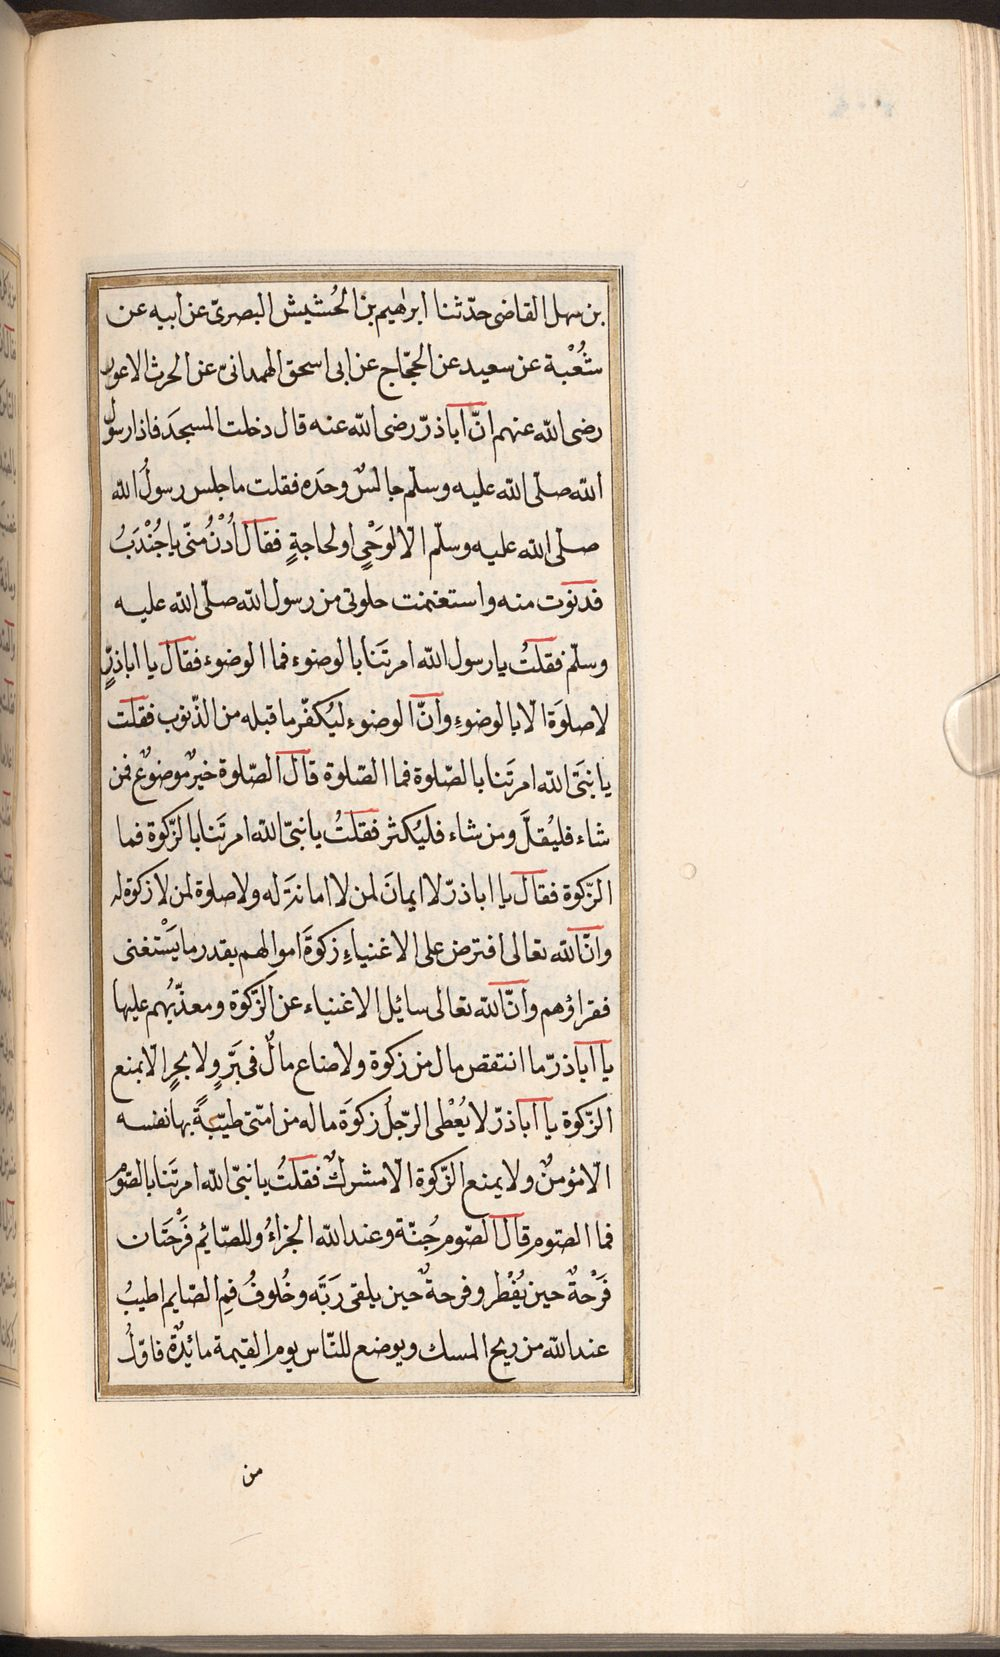 بن سهل القاضى حدّثنا ابرهيم بن الحُشيش البصرىّ عن ابيه عن
شُعْبة عن سعيد عن الحجّاج عن ابى اسحق الهمدانىّ عن الحرث الاعور
رضى الله عنهم انّ اباذرّ رضى الله عنه قال دخلت المسجدَ فاذا رسولُ
الله صلّى الله عليه وسلّم جالسٌ وحدَه فقلت ما جلس رسولُ الله
صلّى الله عليه وسلّم الّا لوَحْىٍ او لحاجةٍ فقال اُدْنُ منّى يا جُنْدَبُ
فدنوت منه واستغنمت خلوتى من رسول الله صلّى الله عليه
وسلّم فقلتُ يا رسول الله امرتَنا بالوضوء فما الوضوء فقال يا اباذرٍّ
لا صلوَة الّا بالوضوءِ وانّ الوضوء ليُكفّر ما قبله من الذّنوب فقلت
يا نبىَّ الله امرتَنا بالصّلوة فما الصّلوة قال الصّلوة خيرٌ موضوعٌ فمن
شاء فليُقلَّ ومن شاء فليُكثر فقلتُ يا نبىّ الله امرتَنا بالزّكوة فما
الزّكوة فقال يا اباذرّ لا ايمانَ لمن لا امانةَ له ولا صلوة لمن لا زكوة له
وانّ الله تعالى افترض على الاغنياءِ زكوةَ اموالهم بقدر ما يَسْتغنى
فقراؤهم وانّ الله تعالى سايل الاغنياء عن الزّكوة ومعذّبُهم عليها
يا اباذرّ ما انتقص مال من زكوة ولا ضاع مالٌ فى بَرٍّ ولا بحرٍ الّا بمنع
الزّكوة يا اباذرّ لا يُعْطى الرّجلُ زكوَة ماله من امّتى طيّبةً بها نفسه
الّا مؤمنٌ ولا يمنع الزّكوة الّا مشركٌ فقلتُ يا نبىّ الله امرتَنا بالصّوم
فما الصّوم قال الصّوم جُنّة وعند الله الجزاءُ وللصّائم فَرْحَتان
فَرْحةٌ حين يُفْطر وفرحةٌ حين يلقى رَبَّه وخُلوفُ فمِ الصّايم اطيبُ
عند الله من ريح المسك ويوضع للنّاس يوم القيمة مائدةٌ فاوّلُ
من